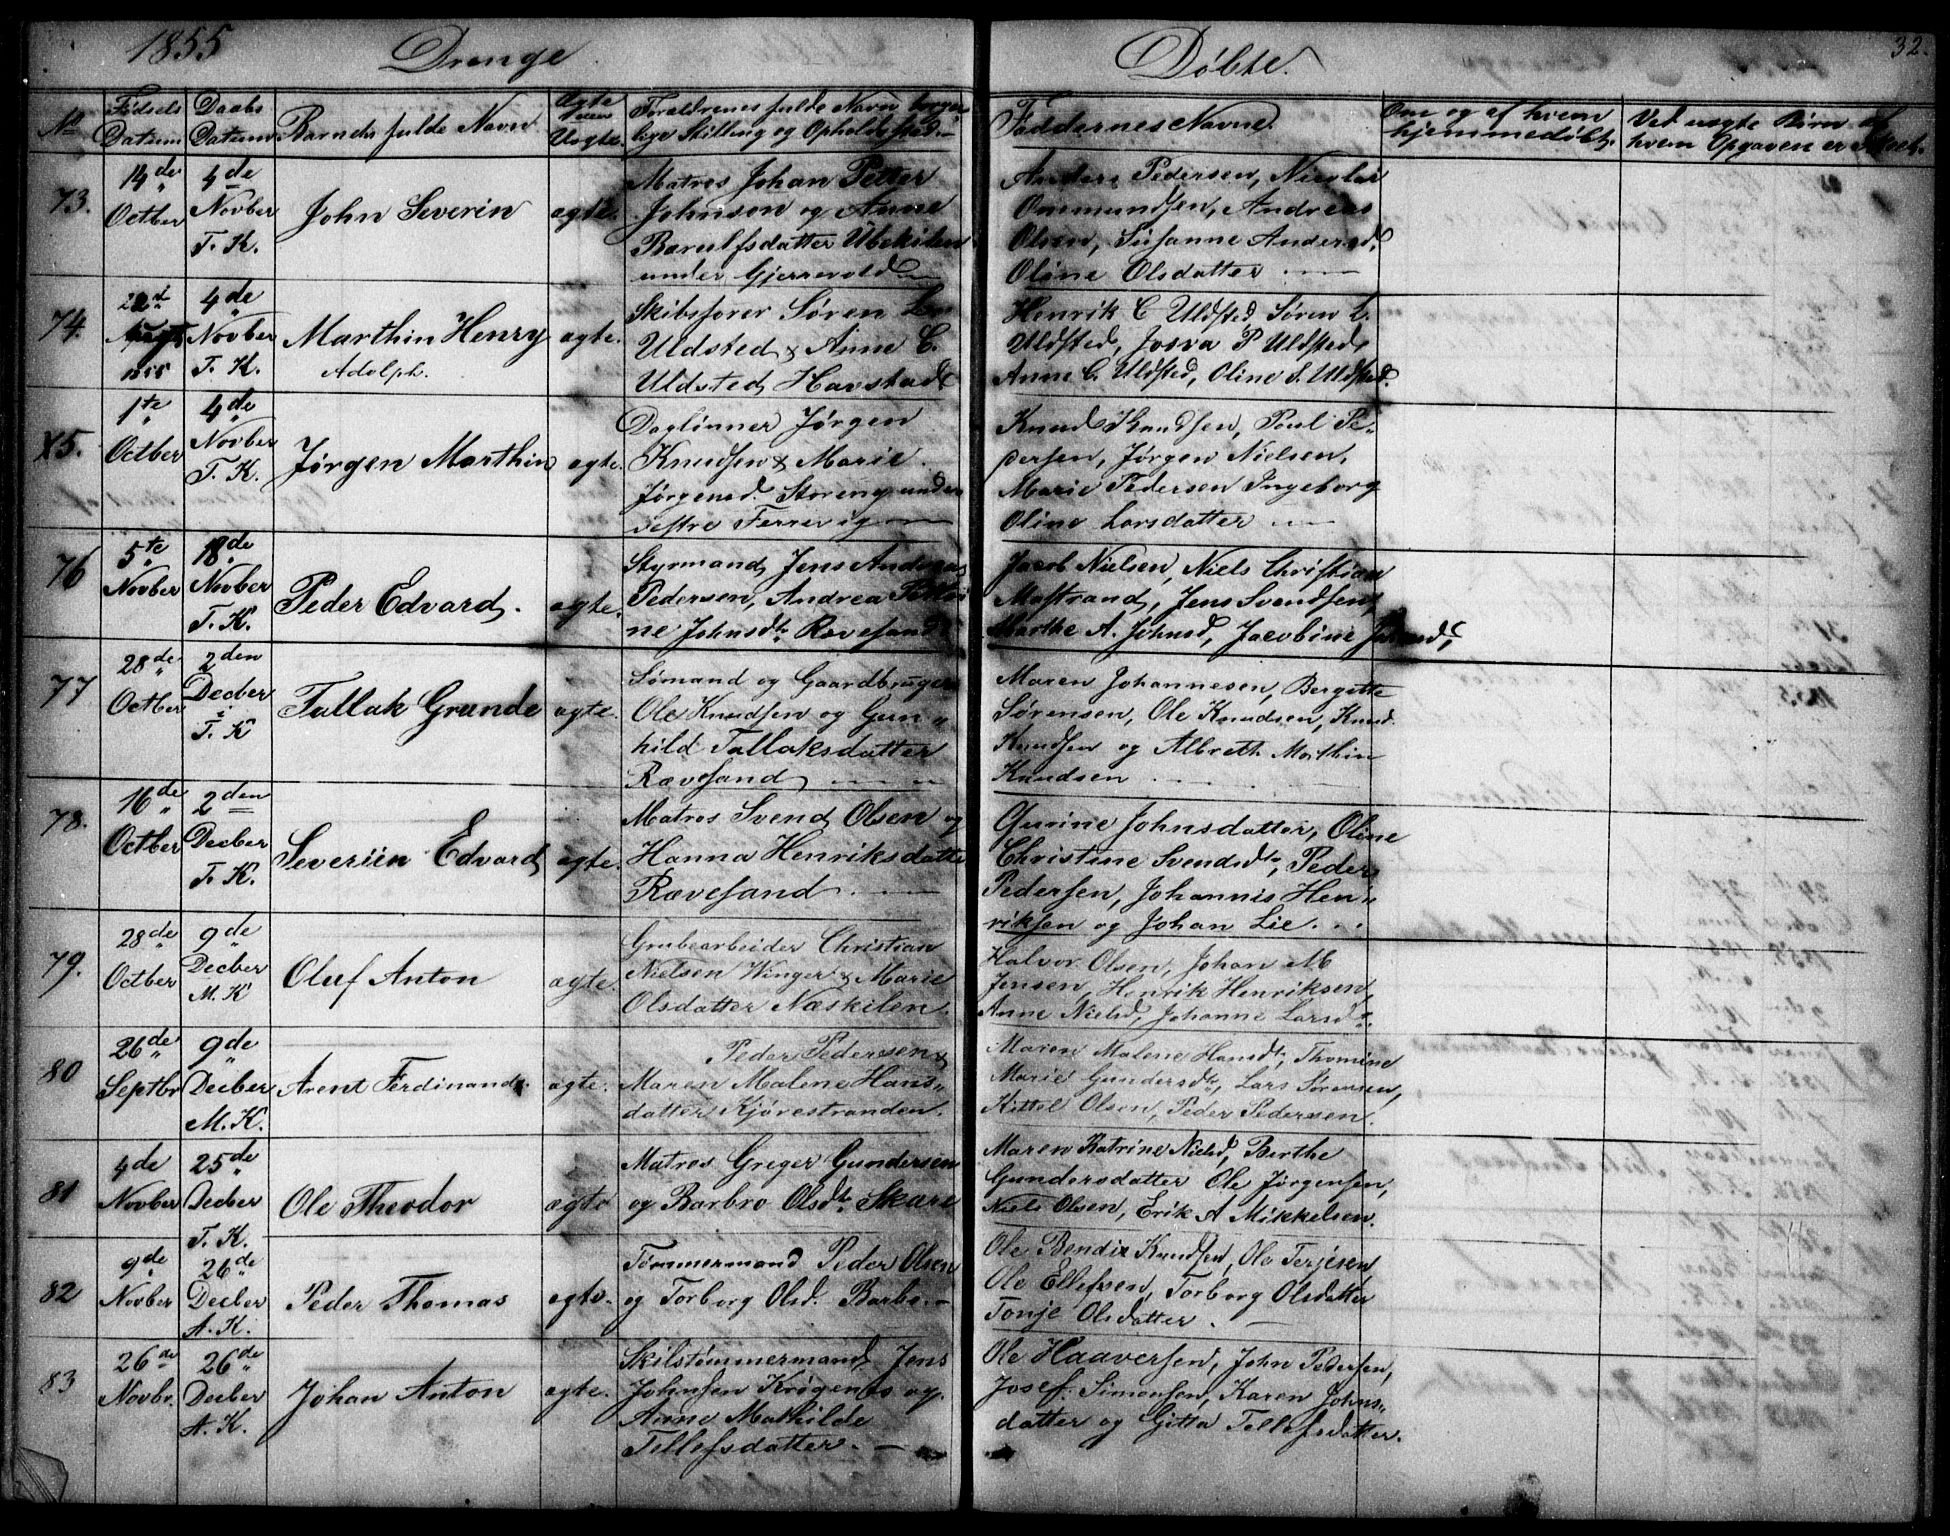 1855 Drenge. Døbte. 32.
No
Fødsels Datum
Daabs Datum
Barnets fulde Navn
Ægte eller Uægte.
Forældrenes fulde Navn, borger-
lige Stilling og Opholdssted
Faddernes Navne.
Om og af hvem
hjemmedøbt.
Ved uægte Børn af
hvem Opgaven er
73.
14de Octber
4de Novber T. K.
John Severin
ægte.
Matros Johan Petter
Johnson og Anne
Barulfsdatter Ubekilen
under Gjerrevold
Anders Pedersen, Nicolai
Ommundsen, Andreas
Olsen, Susanne Andersd,
Oline Olsdatter
74.
1855
4de Novber T. K.
Marthin Henry
Adolph.
ægte.
Skibsfører Søren L.
Uldsted & Anne C.
Uldsted, Havstad
Henrik C Uldsted Søren L.
Uldsted, Josva P Uldsted,
Anne C. Uldsted, Oline S. Uldsted.
75.
1te Octber
4de Novber T. K.
Jørgen Marthin
ægte.
Daglønner Jørgen
Knudsen & Marie
Jørgensd. Storeng under
vestre Ferrevig
Knud Knudsen, Poul Pe-
dersen, Jørgen Nielsen,
Marie Pedersen Ingeborg
Oline Larsdatter
76
5te Novber
18de Novber T. K.
Peder Edvard.
ægte.
Styrmand Jens Andreas
Pedersen, Andrea Petri
ne Johnsdtr Ravesand
Jacob Nielsen, Niels Christian
Mostrand, Jens Svendsen,
Marthe A. Johnsd, Jacobine
77
28de Octber
2den Decber i T. K
Tallak Grunde
ægte.
Sømand og Gaardbruger
Ole Knudsen og Gun
hild Tallaksdatter
Rævesand
Maren Johannesen, Bergitte
Sørensen, Ole Knudsen, Knud
Knudsen og Albreth Mathin
Knudsen
78.
16de Octber
2den Decber T. K.
Severiin Edvard
ægte.
Matros Svend Olsen og
Hanna Henriksdatter
Rævesand
Gurine Johnsdatter, Oline
Christine Svendsdtr, Peder
Pedersen, Johannis Hen
riksen og Johan Lie.
79.
28de Octber
9de Decber M. K
Oluf Anton
ægte.
Grubearbeider Christian
Nielsen Winger & Marie
Olsdatter Næskilen.
Halvor Olsen, Johan M
Jensen, Henrik Henriksen,
Anne Nielsd, Johanne Larsdtr.
80
26de Septbr
9de Decber M. K.
Arent Ferdinand
ægte.
Peder Pedersen &
Maren Malene Hans
datter Kjørestranden.
Maren Malene Hansdtr, Thomine
Marie Gundersdtr, Lars Sørensen,
Kittel Olsen, Peder Pedersen.
81
4de Novber
25de Decber T. K.
Ole Theodor
ægte
Matros Greger Gundersen
og Barbro Olsdtr Skare
Maren Katrine Nielsd, Berthe
Gundersdatter Ole Jørgensen,
Niels Olsen, Erik A Mikkelsen.
82
9de Novber
26de Decber A. K.
Peder Thomas
ægte.
Tømmermand Peder Olsen
og Torborg Olsd. Barbo.
Ole Bendix Knudsen, Ole Terjesen
Ole Ellefsen, Torborg Olsdatter
Tonje Olsdatter.
83
26de Novbr.
26de Decber A. K.
Johan Anton
ægte.
Skibstømmermand Jens
Johnsen Krøgenes og
Anne Mathilde
Tellefsdatter.
Ole Haaversen, John Pedersen,
Josef Simonsen, Karen Johns
datter og Gitta Tellefsdatter.